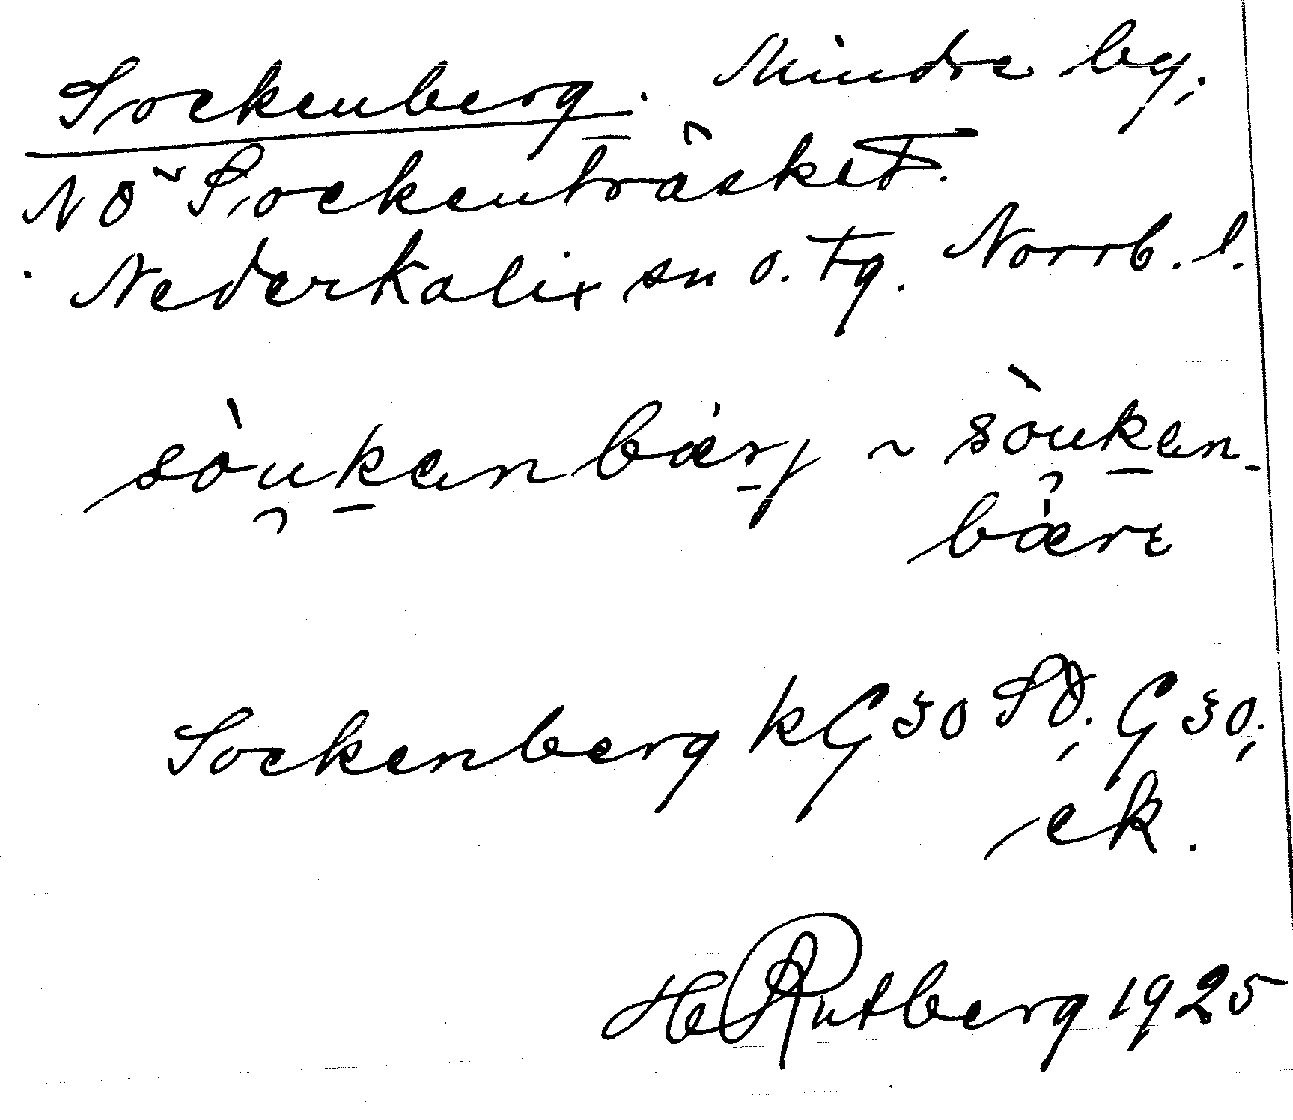 Sockenberg. Mindre by,
NÖ Sockenträsket.
Nederkalix sn o. tg. Norrb. l.
sòu̯kanbærj ~ sòu̯kan-
bærɛ
Sockenberg kG 30 SÖ, G 30,
ek.
H Rutberg 1925